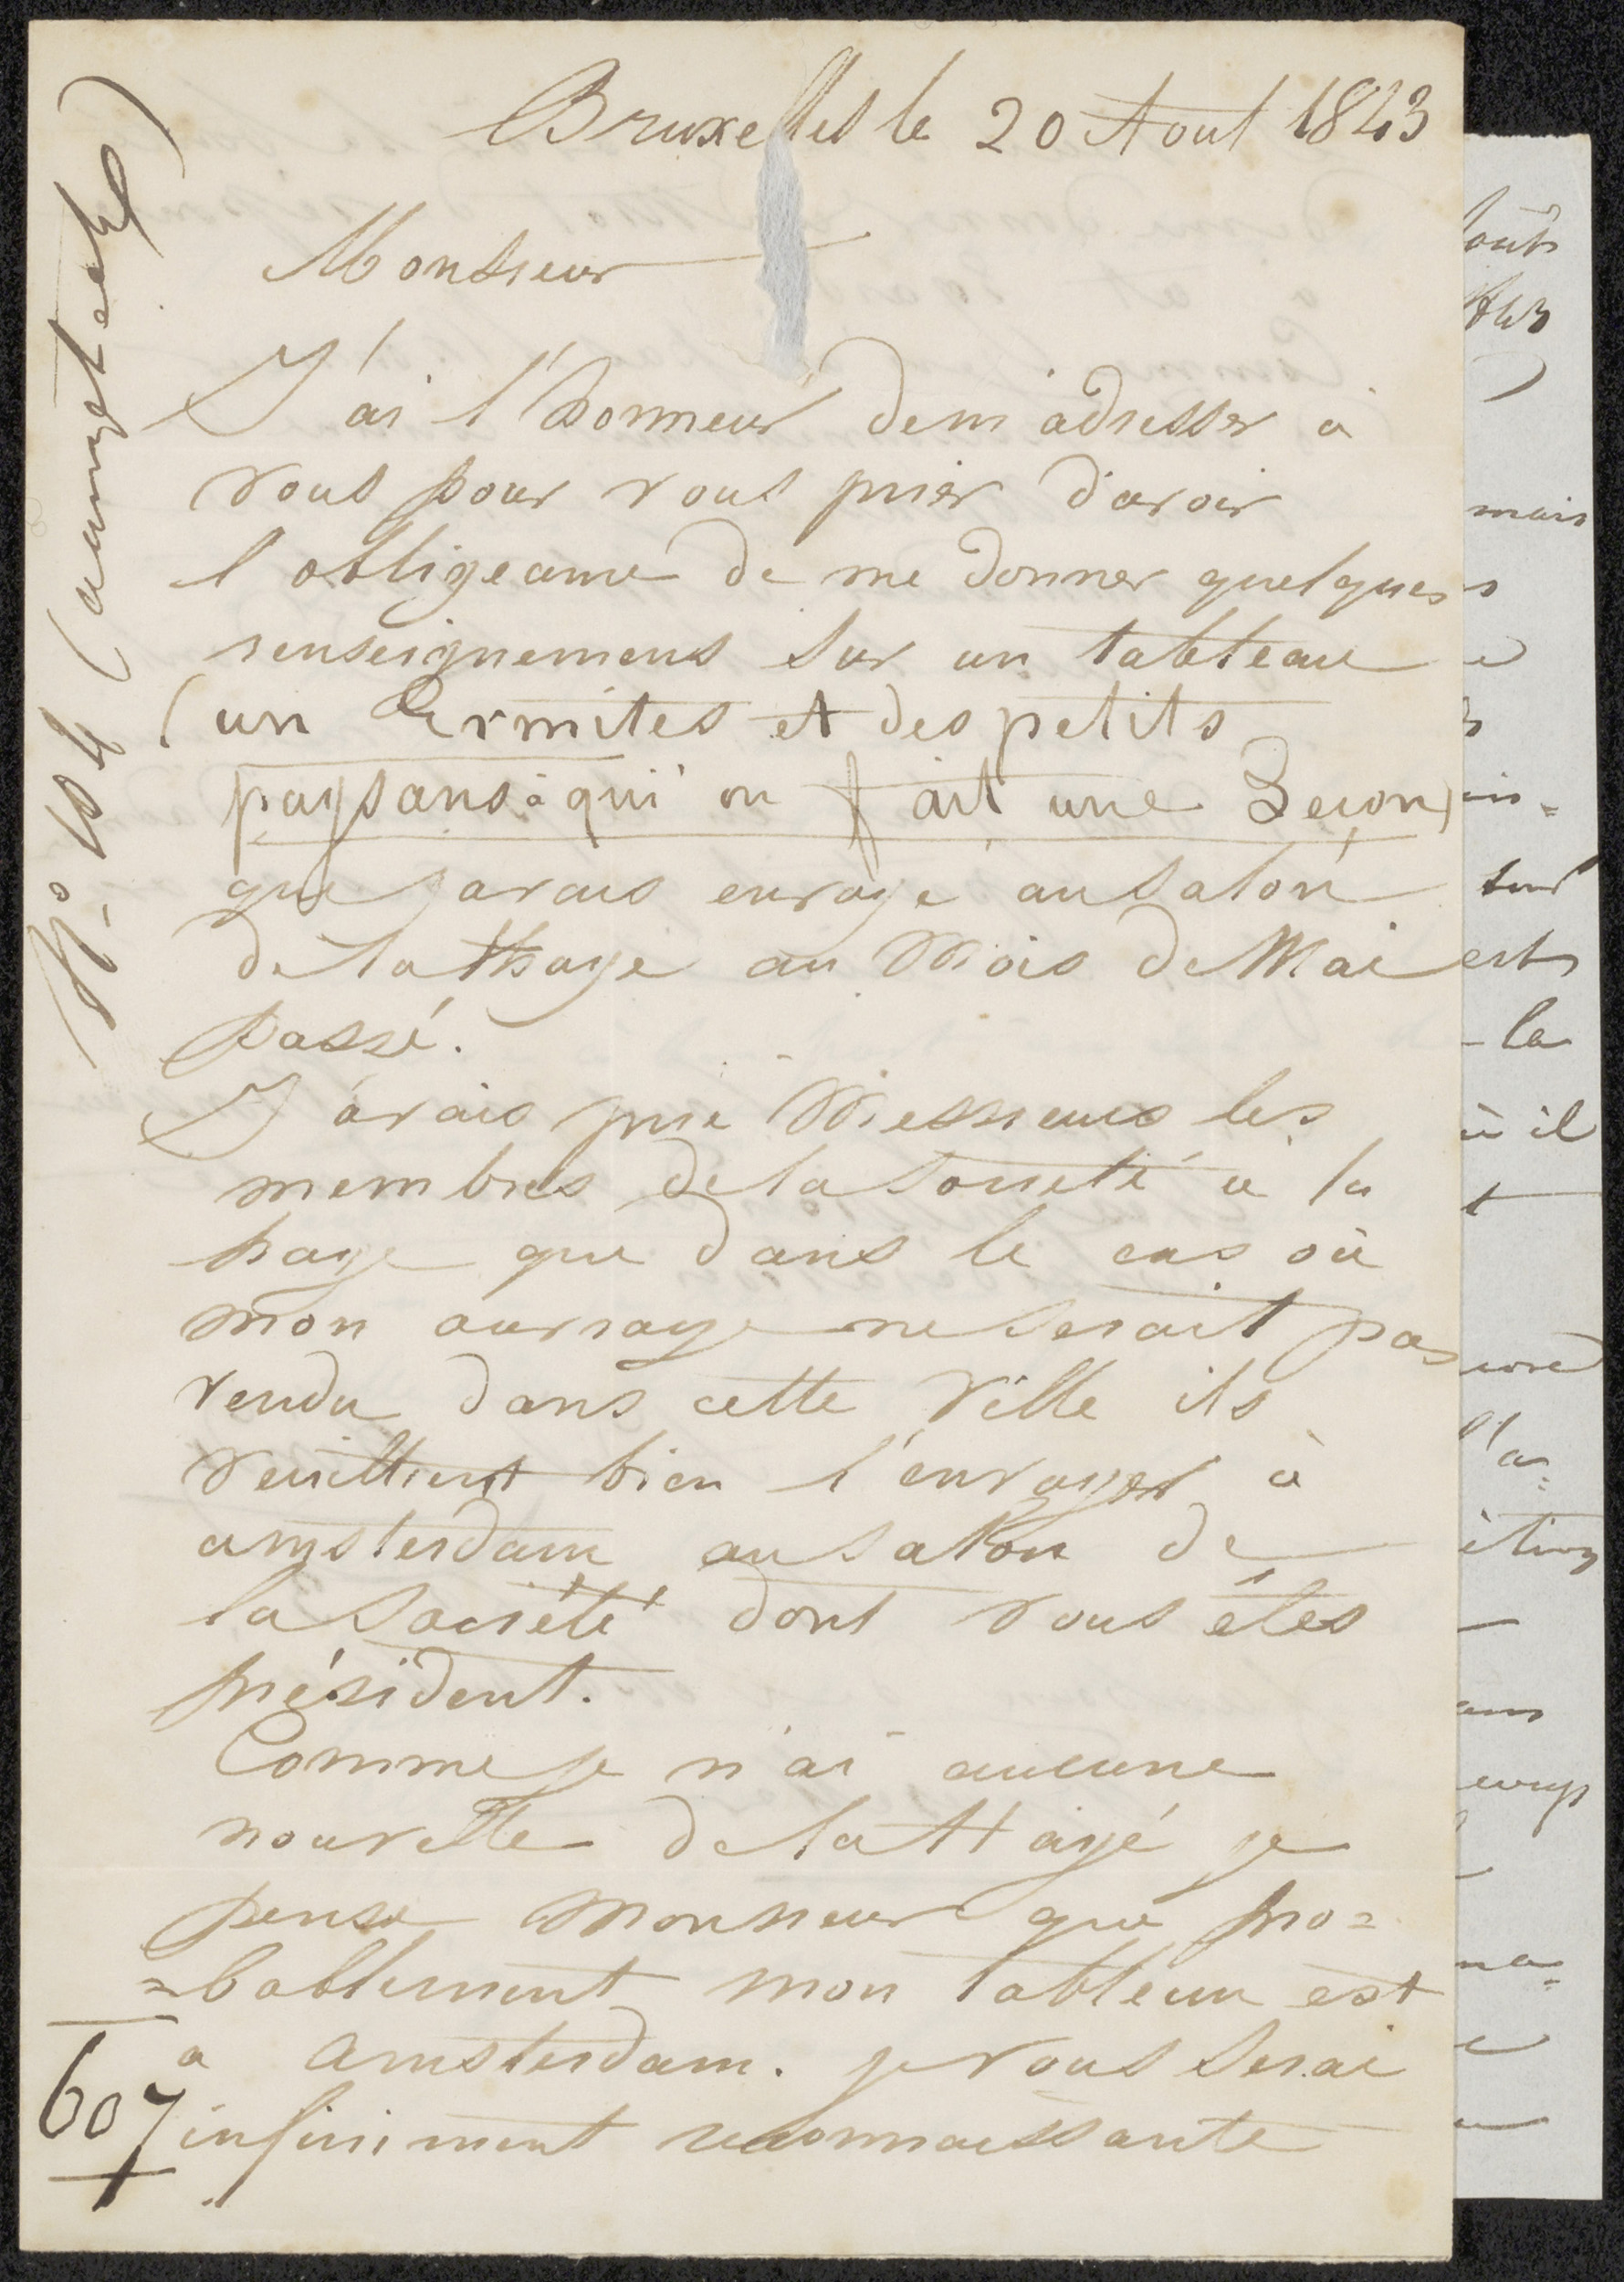 Bruxelles le 20 Aout 1843
Monsieur
J'ai l'honneur de m'adresser à
vous pour vous prier d'avoir
l obligeance de me donner quelques
renseignemens sur un tableau
(un Ermites et des petits
paysans à qui on fait une Leçon)
que j'avais envoyé au salon
de la Haye au Mois de Mai
passé.
J'avais prié Messieurs les
membres de la Societé à la
haye que dans le cas où
mon ouvrage ne serait pas
vendu dans cette ville ils
veuillient bien l'envoyer à
amsterdam au salon de
la Société dont vous êtes
président.
Comme je n'ai aucune
nouvelle de la Haye je
pense Monsieur que pro=
=bablement mon tableau est
a Amsterdam. je vous serai
infiniment reconnaissante
N° 104
607
mais
sur
est
la
il
l'a=